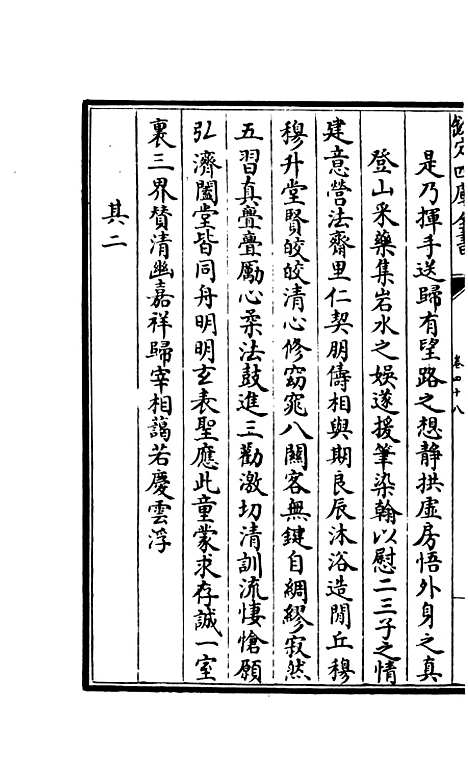 欽定四庫全書
卷四十八
是乃揮手送歸有望路之想靜拱虛房悟外身之真
登山采藥集岩水之娛遂援筆染翰以慰二三子之情
建意營法齋里仁契朋儔相與期良辰沐浴造閒丘穆
穆升堂賢皎皎清心修窈窕八關客無鍵自綢繆寂然
五習真亹亹勵心柔法鼓進三勸激切清訓流悽愴願
弘濟闔堂皆同舟明明玄表聖應此童蒙求存誠一室
裏三界贊清幽嘉祥歸宰相藹若慶雲浮
其二